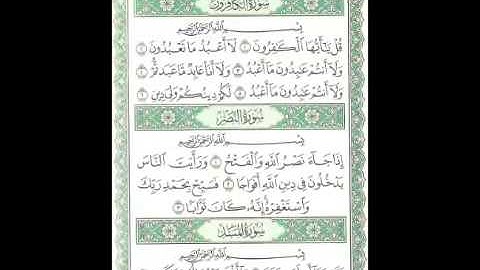 سُورَةُ الكَافِرُونَ
بِسْمِ اللَّهِ الرَّحْمَٰنِ الرَّحِيمِ
قُلْ يَٰٓأَيُّهَا ٱلْكَٰفِرُونَ ١ لَآ أَعْبُدُ مَا تَعْبُدُونَ ٢
وَلَآ أَنتُمْ عَٰبِدُونَ مَآ أَعْبُدُ ٣ وَلَآ أَنَا۠ عَابِدٌ مَّا عَبَدتُّمْ ٤
وَلَآ أَنتُمْ عَٰبِدُونَ مَآ أَعْبُدُ ٥ لَكُمْ دِينُكُمْ وَلِىَ دِينِ ٦
سُورَةُ النَّصْرِ
بِسْمِ اللَّهِ الرَّحْمَٰنِ الرَّحِيمِ
إِذَا جَآءَ نَصْرُ ٱللَّهِ وَٱلْفَتْحُ ١ وَرَأَيْتَ ٱلنَّاسَ
يَدْخُلُونَ فِى دِينِ ٱللَّهِ أَفْوَاجًا ٢ فَسَبِّحْ بِحَمْدِ رَبِّكَ
وَٱسْتَغْفِرْهُ إِنَّهُۥ كَانَ تَوَّابًۢا ٣
سُورَةُ المَسَدِ
بِسْمِ اللَّهِ الرَّحْمَٰنِ الرَّحِيمِ